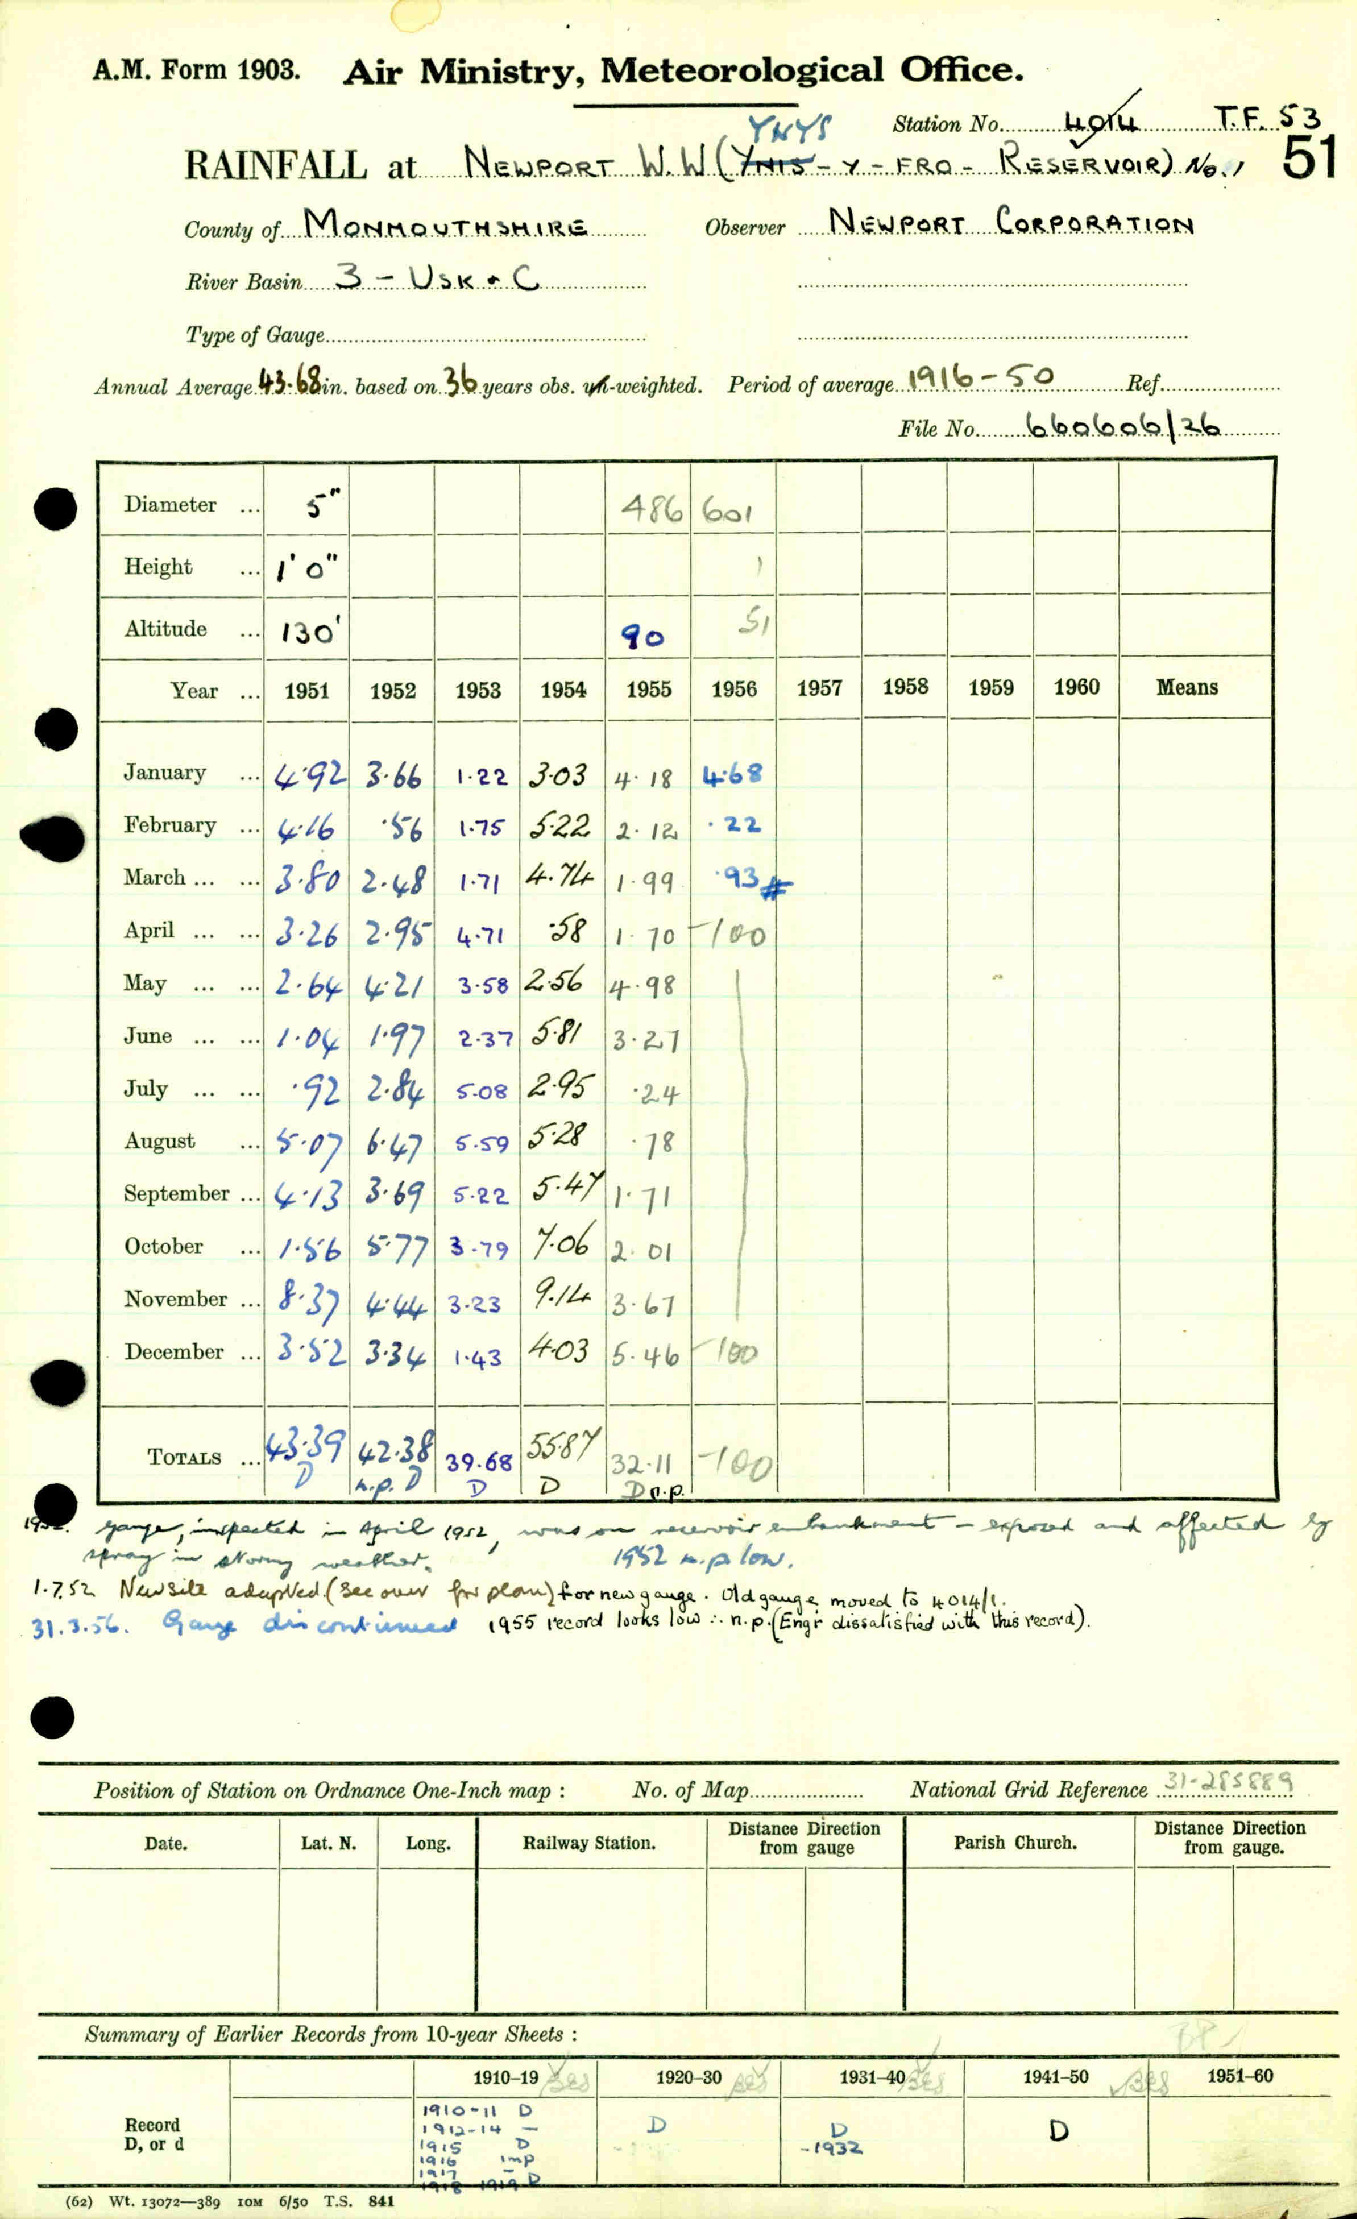 A.M. Form 1903. Air Ministry, Meteorological Office.
Station No. 4014 T.F. 53
YNYS
RAINFALL at NEWPORT W.W (YNIS-Y-FRO- RESERVOIR) No. 1 51
County of MONMOUTHSHIRE Observer NEWPORT CORPORATION
River Basin 3 - USK + C
Type of Gauge
Annual Average 43.68 in. based on 36 years obs. un-weighted. Period of average 1916-50 Ref.
File No. 660606/26
Diameter ... 5" 486 601
Height ... 1' 0" 1
Altitude ... 130' 90 51
Year ... 1951 1952 1953 1954 1955 1956 1957 1958 1959 1960 Means
January ... 4.92 3.66 1.22 3.03 4.18 4.68
February ... 4.16 .56 1.75 5.22 2.12 .22
March ... ... 3.80 2.48 1.71 4.74 1.99 .93 #
April ... ... 3.26 2.95 4.71 .58 1.70 -100
May ... ... 2.64 4.21 3.58 2.56 4.98
June ... ... 1.04 1.97 2.37 5.81 3.27
July ... ... .92 2.84 5.08 2.95 .24
August ... 5.07 6.47 5.59 5.28 .78
September ... 4.13 3.69 5.22 5.47 1.71
October ... 1.56 5.77 3.79 7.06 2.01
November ... 8.37 4.44 3.23 9.14 3.67
December ... 3.52 3.34 1.43 4.03 5.46 -100
TOTALS ... 43.39 42.38 39.68 55.87 32.11 -100
D n.p. D D D D n.p.
Gauge, inspected in April 1952, was on reservoir embankment - exposed and affected by
spray in stormy weather. 1952 n.p low.
1.7.52 New site adopted (see over for plan) for new gauge. Old gauge moved to 4014/1.
31.3.56. Gauge discontinued 1955 record looks low ∴ n.p. (Engr dissatisfied with this record).
Position of Station on Ordnance One-Inch map : No. of Map National Grid Reference 31-285889
Date. Lat. N. Long. Railway Station. Distance from Direction gauge Parish Church. Distance from Direction gauge.
Summary of Earlier Records from 10-year Sheets :
1910–19 1920–30 1931–40 1941–50 1951–60
Record D, or d
1910-11 D D D D
1912-14 —
1915 D -1932
1916 Imp
1917 —
1918 1919 D
(62) Wt. 13072—389 10M 6/50 T.S. 841